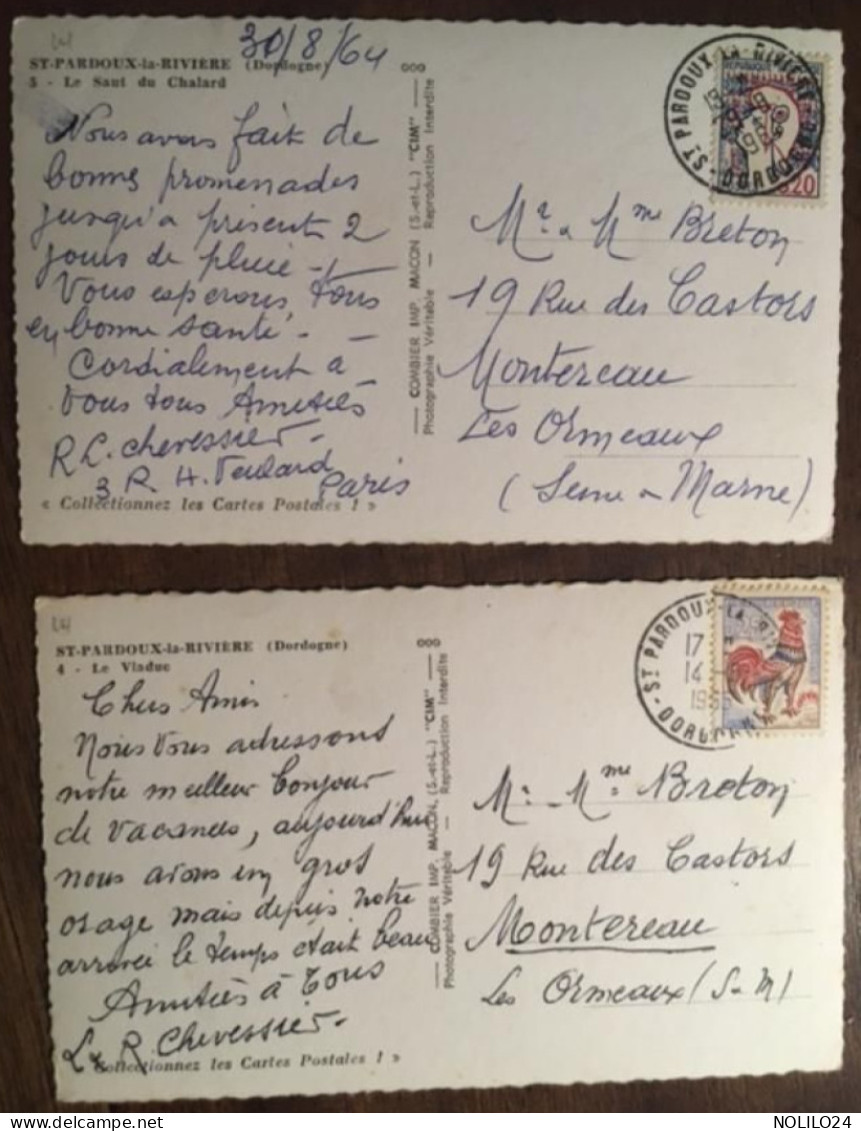 30/8/64
ST-PARDOUX-la-RIVIÈRE (Dordogne)
5 - Le Saut du Chalard
Nous avons fait de
bonnes promenades
jusqu'a présent 2
jours de pluie -
Vous esperons, tous
en bonne santé. -
Cordialement a
vous tous Amitiés
R L. Chevessier -
3 R. H.
Paris
« Collectionnez les Cartes Postales ! »
COMBIER IMP. MACON (S.-et-L.) "CIM"
Photographie Véritable — Reproduction Interdite
ST PARDOUX-LA-RIVIERE
DORDOGNE
0.20
Mr & Mme Breton
19 Rue des Castors
Montereau
Les Ormeaux
(Seine & Marne)
ST-PARDOUX-la-RIVIÈRE (Dordogne)
4 - Le Viaduc
Chers Amis
Nous vous adressons
notre meilleur bonjour
de vacances, aujourd'hui
nous avons eu gros
orage mais depuis notre
arrivée le temps était beau
Amitiés à Tous
L & R. Chevessier -
« Collectionnez les Cartes Postales ! »
COMBIER IMP. MACON (S.-et-L.) "CIM"
Photographie Véritable — Reproduction Interdite
ST PARDOUX-LA-RIV
17 H
14
196
DORDOGNE
Mr - Mme Breton
19 Rue des Castors
Montereau
Les Ormeaux (S-M)
NOLILO24